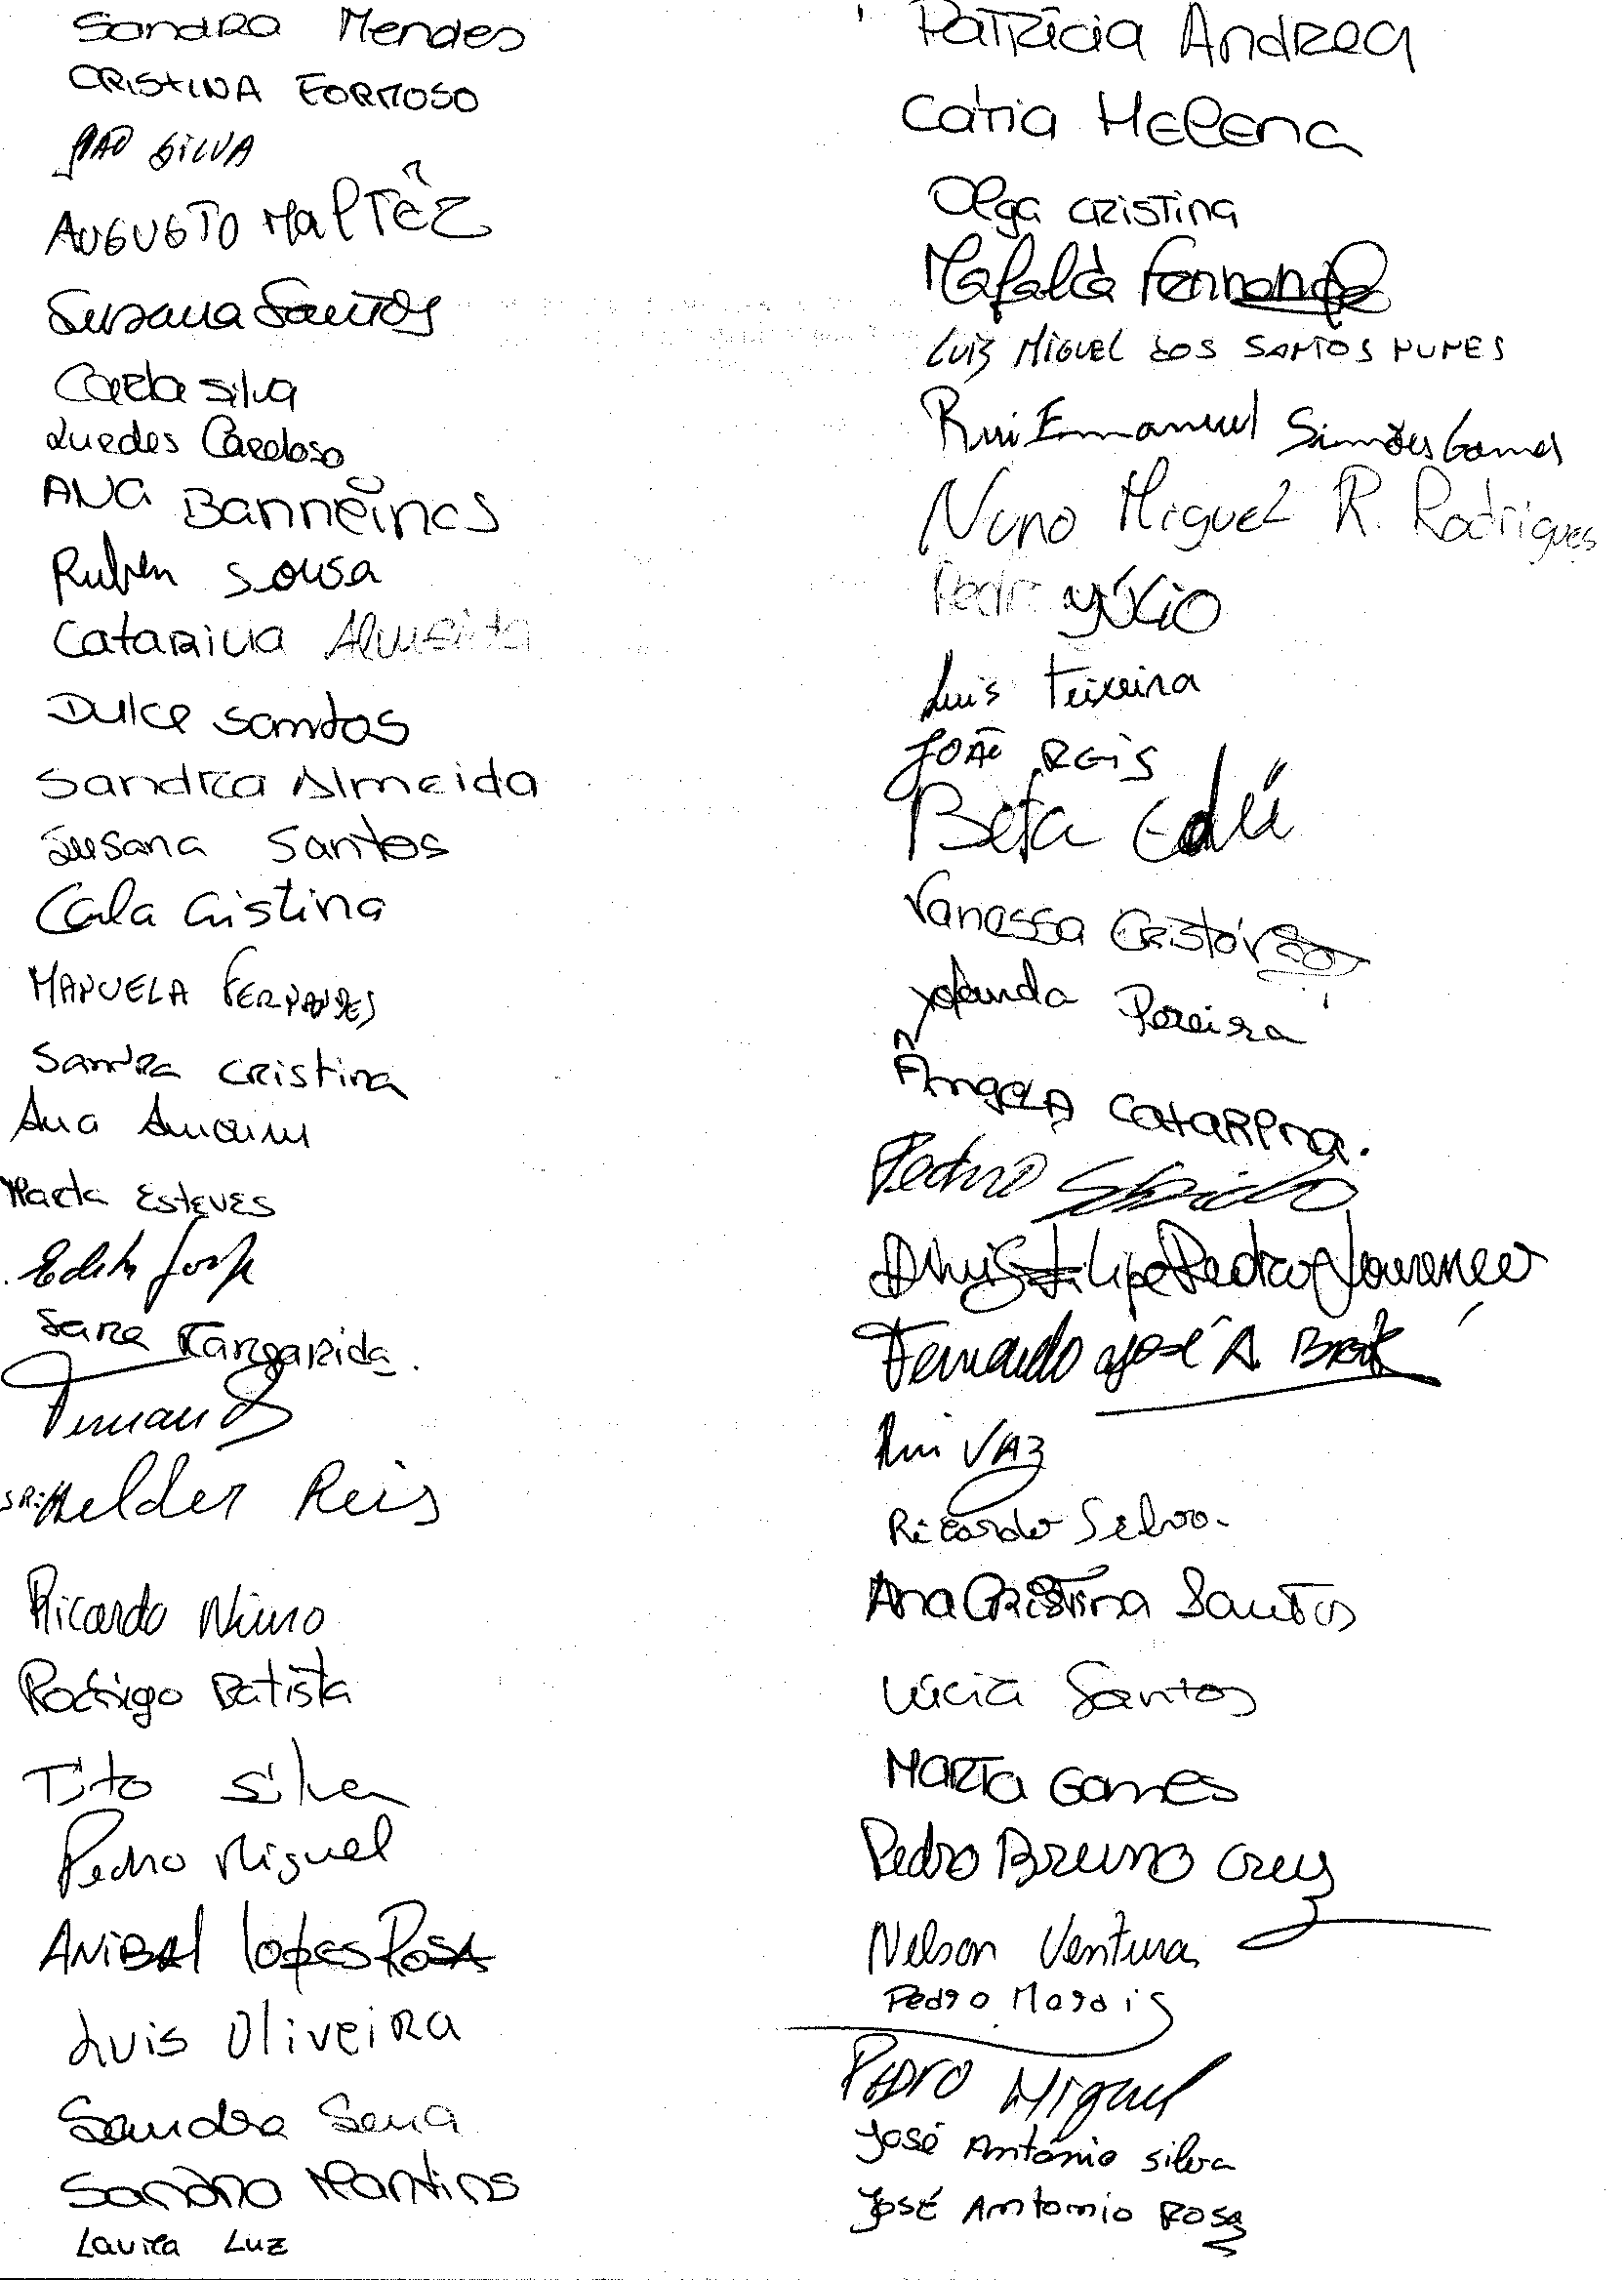 Sandra Mendes
CRISTINA FORMOSO
JOÃO SILVA
AUGUSTO MALTÊZ
Susana Santos
Carla Silva
Lurdes Cardoso
ANA Barreiros
Ruben Sousa
Catarina Almeida
Dulce Santos
Sandra Almeida
Susana Santos
Carla Cristina
MANUELA FERNANDES
Sandra Cristina
Ana Amorim
Marta Esteves
Edite Jorge
Sara Margarida.
Fernando
Helder Reis
Ricardo Nuno
Rodrigo Batista
Tito Silva
Pedro Miguel
ANIBAL Lopes ROSA
Luis Oliveira
Sandra Sena
Sandro Martins
Laura Luz
Patrícia Andrea
Cátia Helena
Olga Cristina
Mafalda Fernandes
LUIS MIGUEL DOS SANTOS NUNES
Rui Emmanuel Simões Gomes
Nuno Miguel R. Rodrigues
Pedro Lúcio
Luis Teixeira
JOÃO REIS
Beta
Vanessa Cristóvão
Yolanda Pereira
Ângela Catarina.
Pedro
Luis Filipe Pedro Lourenço
Fernando José A. Brito
Rui VAZ
Ricardo Silva.
Ana Cristina Santos
Lúcia Santos
MARTA Gomes
Pedro Bruno Cruz
Nelson Ventura
Pedro Morais
PEDRO Miguel
José António Silva
JOSÉ Antonio ROSA